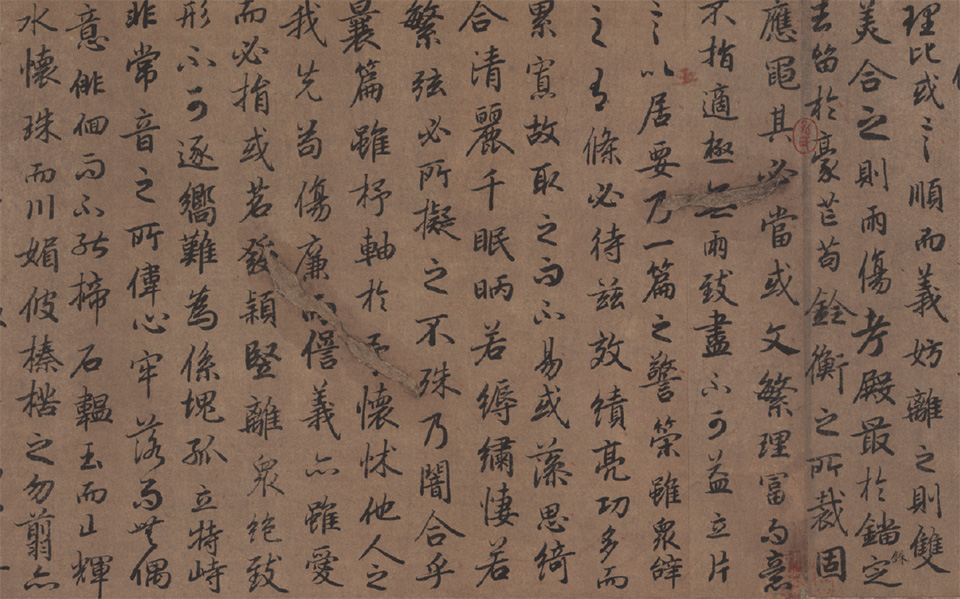 理比或言順而義妨離之則雙
美合之則兩傷考殿最於錙銖定
去留於豪芒苟銓衡之所裁固
應繩其必當或文繁理富而意
不指適極無兩致盡不可益立片
言以居要乃一篇之警策雖衆辭
之有條必待茲效績亮功多而
累寡故取之而不易或藻思綺
合清麗千眠昞若縟繡悽若
繁弦必所擬之不殊乃闇合乎
曩篇雖杼軸於予懷怵他人之
我先苟傷廉而𠍴義亦雖愛
而必捐或苕發穎竪離衆絶致
形不可逐嚮難為係塊孤立特峙
非常音之所偉心牢落而無偶
意徘徊而不能揥石韞玉而山輝
水懷珠而川媚彼榛楛之勿翦亦